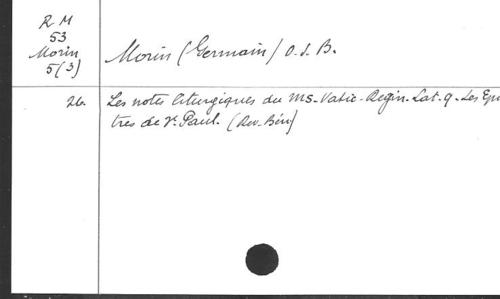 R M
53
Morin
5(3)
Morin (Germain) O.S.B.
26. Les notes liturgiques du Ms. Vatic. Regin. Lat. 9. Les Epi
tres de S. Paul. (Rev. Bén)